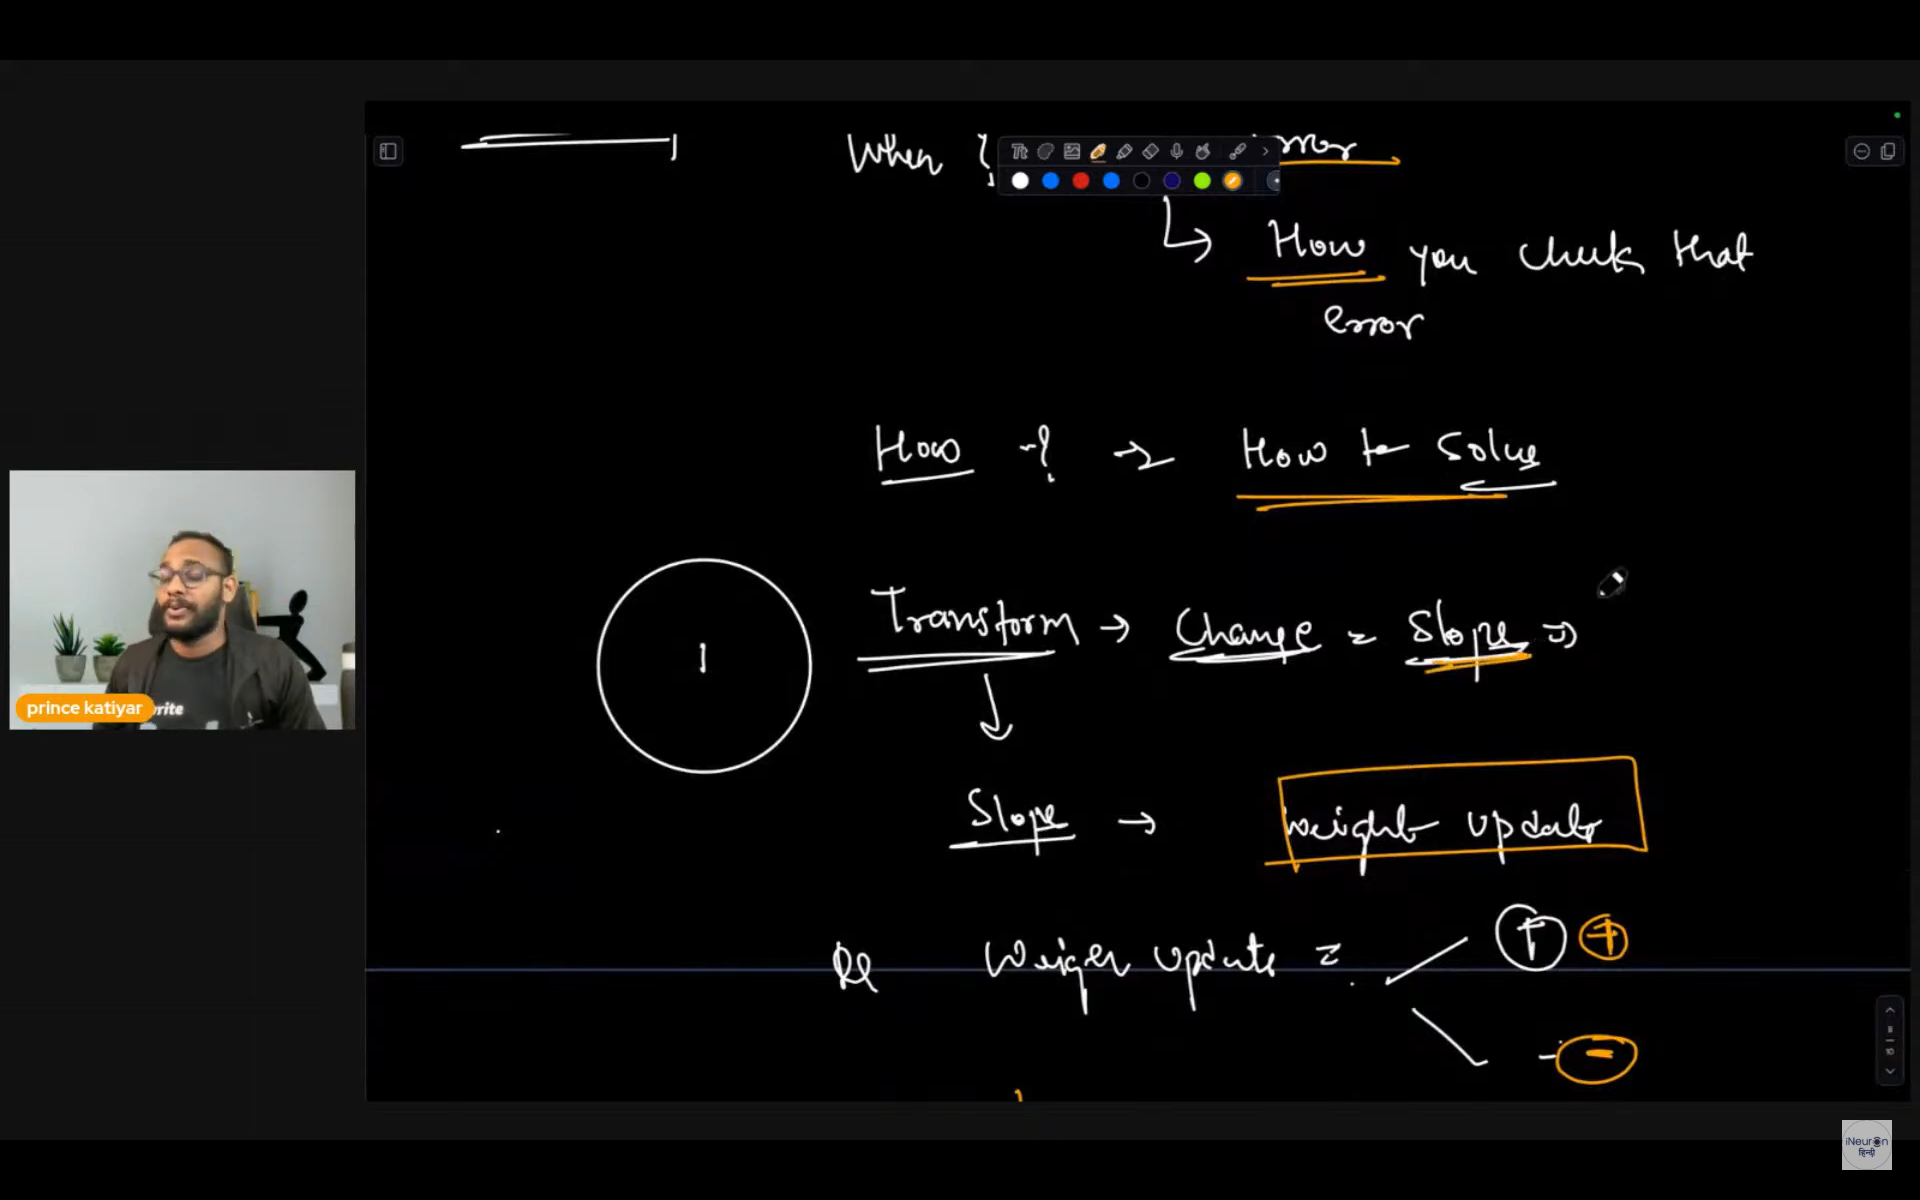 When ?
error
How you check that
error
How -? → How to Solve
Transform → Change = Slope ⇒
I
Slope → weight update
Re Weiger update = + +
- -
prince katiyar
write
iNeuron
हिन्दी